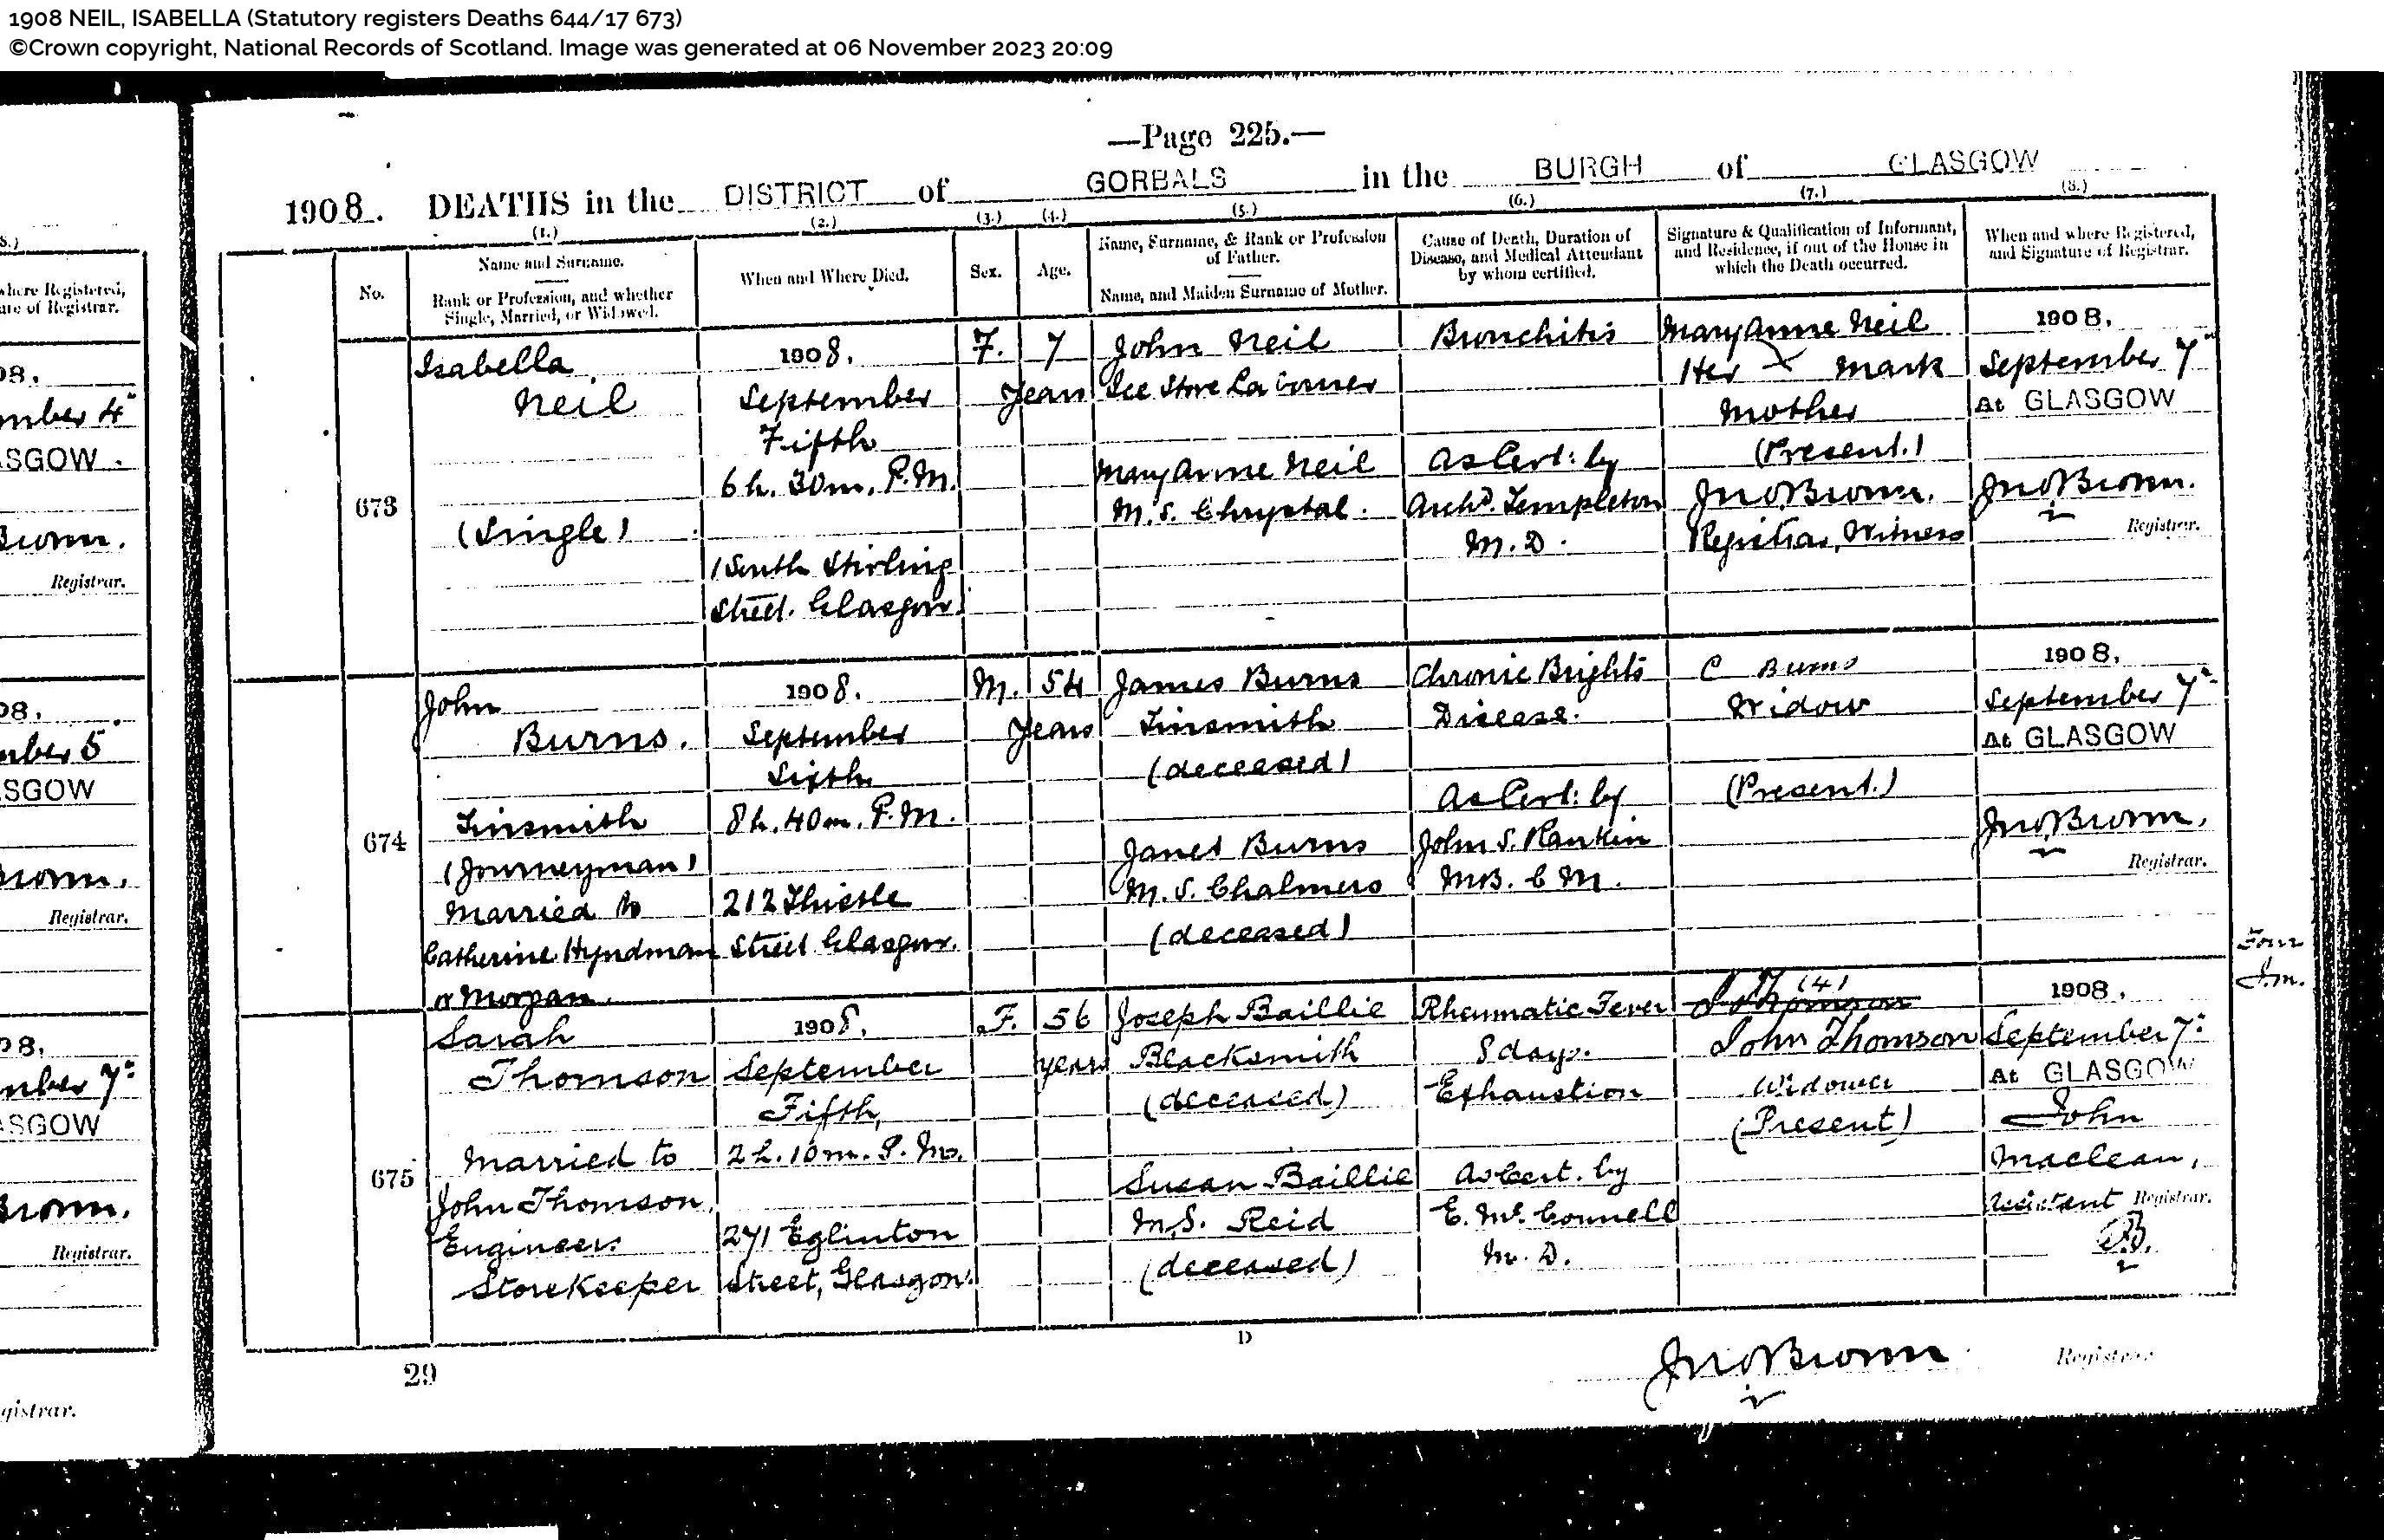 1908 NEIL, ISABELLA (Statutory registers Deaths 644/17 673)
©Crown copyright, National Records of Scotland. Image was generated at 06 November 2023 20:09
—Page 225.—
1908. DEATHS in the DISTRICT of GORBALS in the BURGH of GLASGOW
No.
(1.)
Name and Surname.
Rank or Profession, and whether
Single, Married, or Widowed.
(2.)
When and Where Died.
(3.)
Sex.
(4.)
Age.
(5.)
Name, Surname, & Rank or Profession
of Father.
Name, and Maiden Surname of Mother.
(6.)
Cause of Death, Duration of
Disease, and Medical Attendant
by whom certified.
(7.)
Signature & Qualification of Informant,
and Residence, if out of the House in
which the Death occurred.
(8.)
When and where Registered,
and Signature of Registrar.
673
Isabella
Neil
(Single)
1908.
September
Fifth
6 h. 30 m. P.M.
1 South Stirling
Street. Glasgow
F.
7
Years
John Neil
Ice Store Labourer
Mary Anne Neil
M.S. Chrystal.
Bronchitis
As Cert: by
Archd. Templeton
M.D.
Mary Anne Neil
Her X Mark
Mother
(Present.)
Jno Brown.
Registrar, Witness
1908,
September 7"
At GLASGOW
Jno Brown.
Registrar.
674
John
Burns.
Tinsmith
(Journeyman)
Married to
Catherine Hyndman
or Morgan.
1908.
September
Sixth
8 h. 40 m. P.M.
212 Thistle
Street Glasgow.
M.
54
Years
James Burns
Tinsmith
(deceased)
Janet Burns
M.S. Chalmers
(deceased)
Chronic Brights
Disease.
As Cert: by
John S. Rankin
MB. C M.
C Burns
Widow
(Present.)
1908,
September 7"
At GLASGOW
Jno Brown,
Registrar.
675
Sarah
Thomson
Married to
John Thomson,
Engineers
Storekeeper
1908.
September
Fifth,
2 h. 10 m. P.M.
271 Eglinton
Street, Glasgow.
F.
56
years
Joseph Baillie
Blacksmith
(deceased)
Susan Baillie
M.S. Reid
(deceased)
Rheumatic Fever
8 days.
Exhaustion
As Cert. by
E. McConnell
M.D.
(4)
Thomson
John Thomson
Widower
(Present)
1908,
September 7"
At GLASGOW
John
Maclean,
Assistant Registrar.
Four
J.m.
29
D
Jno Brown Registrar